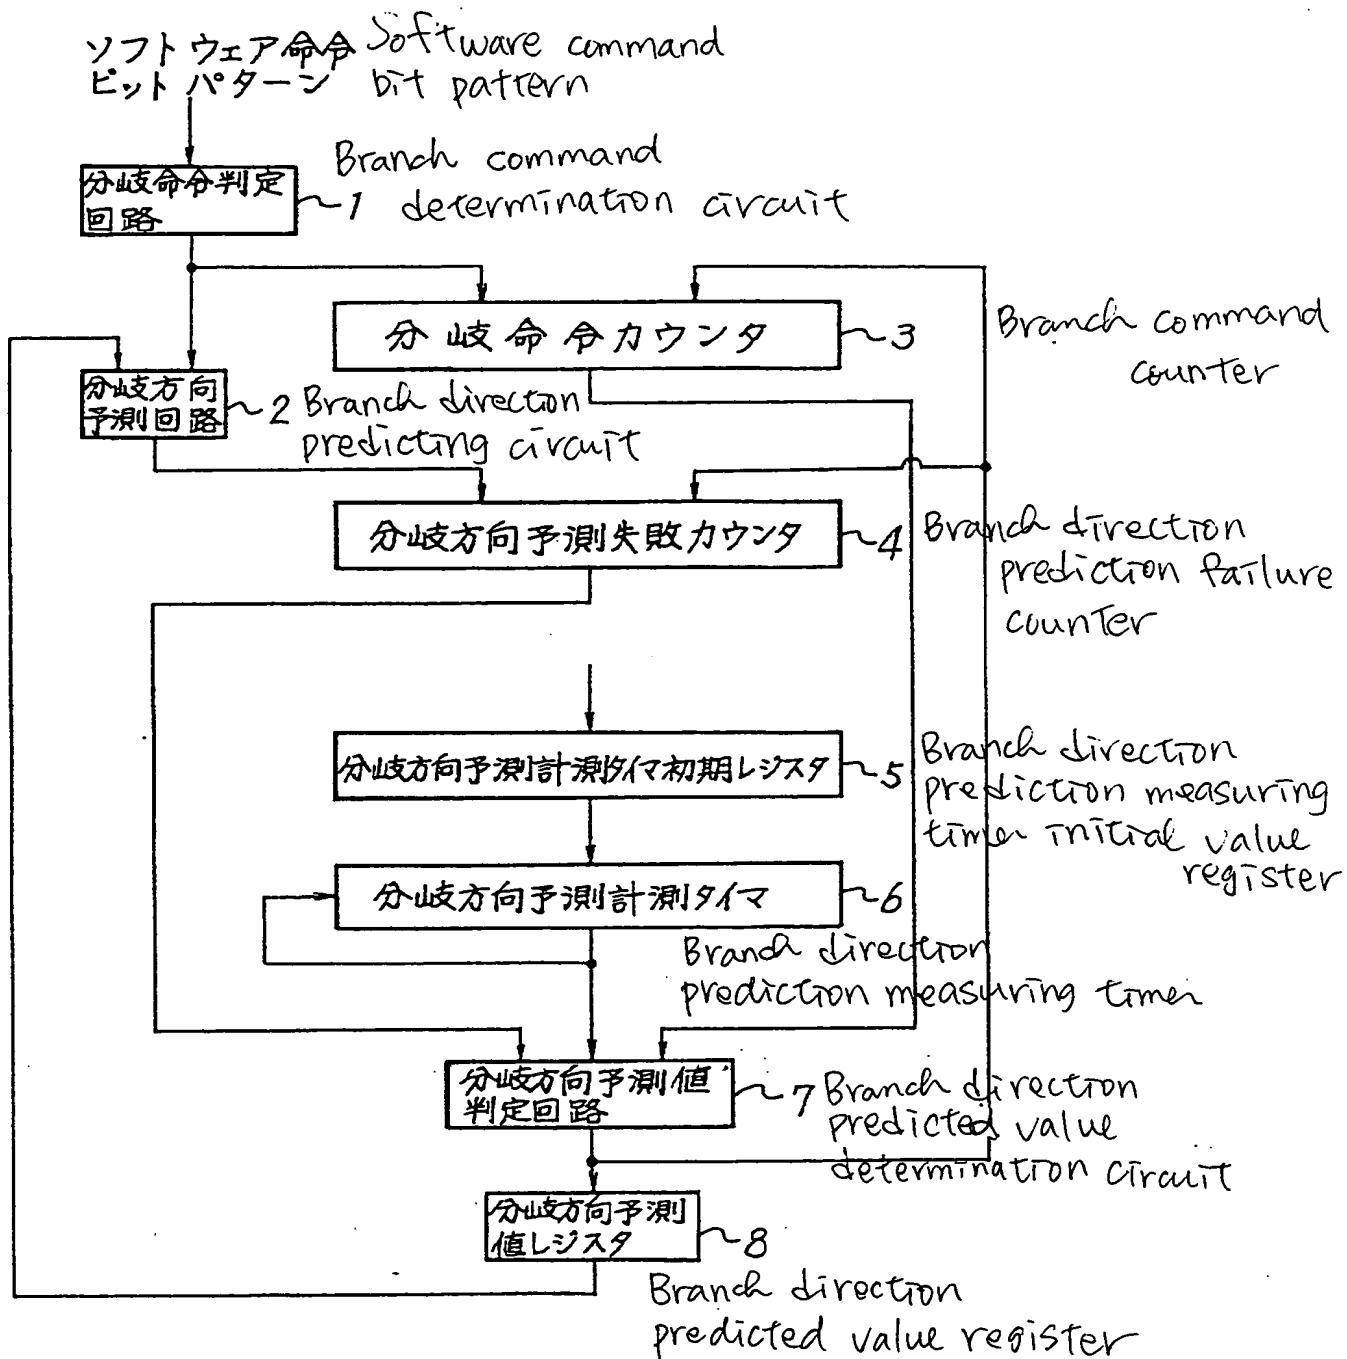 ソフトウェア命令
ビットパターン
Software command
bit pattern
分岐命令判定
回路
1
Branch command
determination circuit
分岐命令カウンタ
3
Branch command
counter
分岐方向
予測回路
2
Branch direction
predicting circuit
分岐方向予測失敗カウンタ
4
Branch direction
prediction failure
counter
分岐方向予測計測タイマ初期レジスタ
5
Branch direction
prediction measuring
timer initial value
register
分岐方向予測計測タイマ
6
Branch direction
prediction measuring timer
分岐方向予測値
判定回路
7
Branch direction
predicted value
determination circuit
分岐方向予測
値レジスタ
8
Branch direction
predicted value register